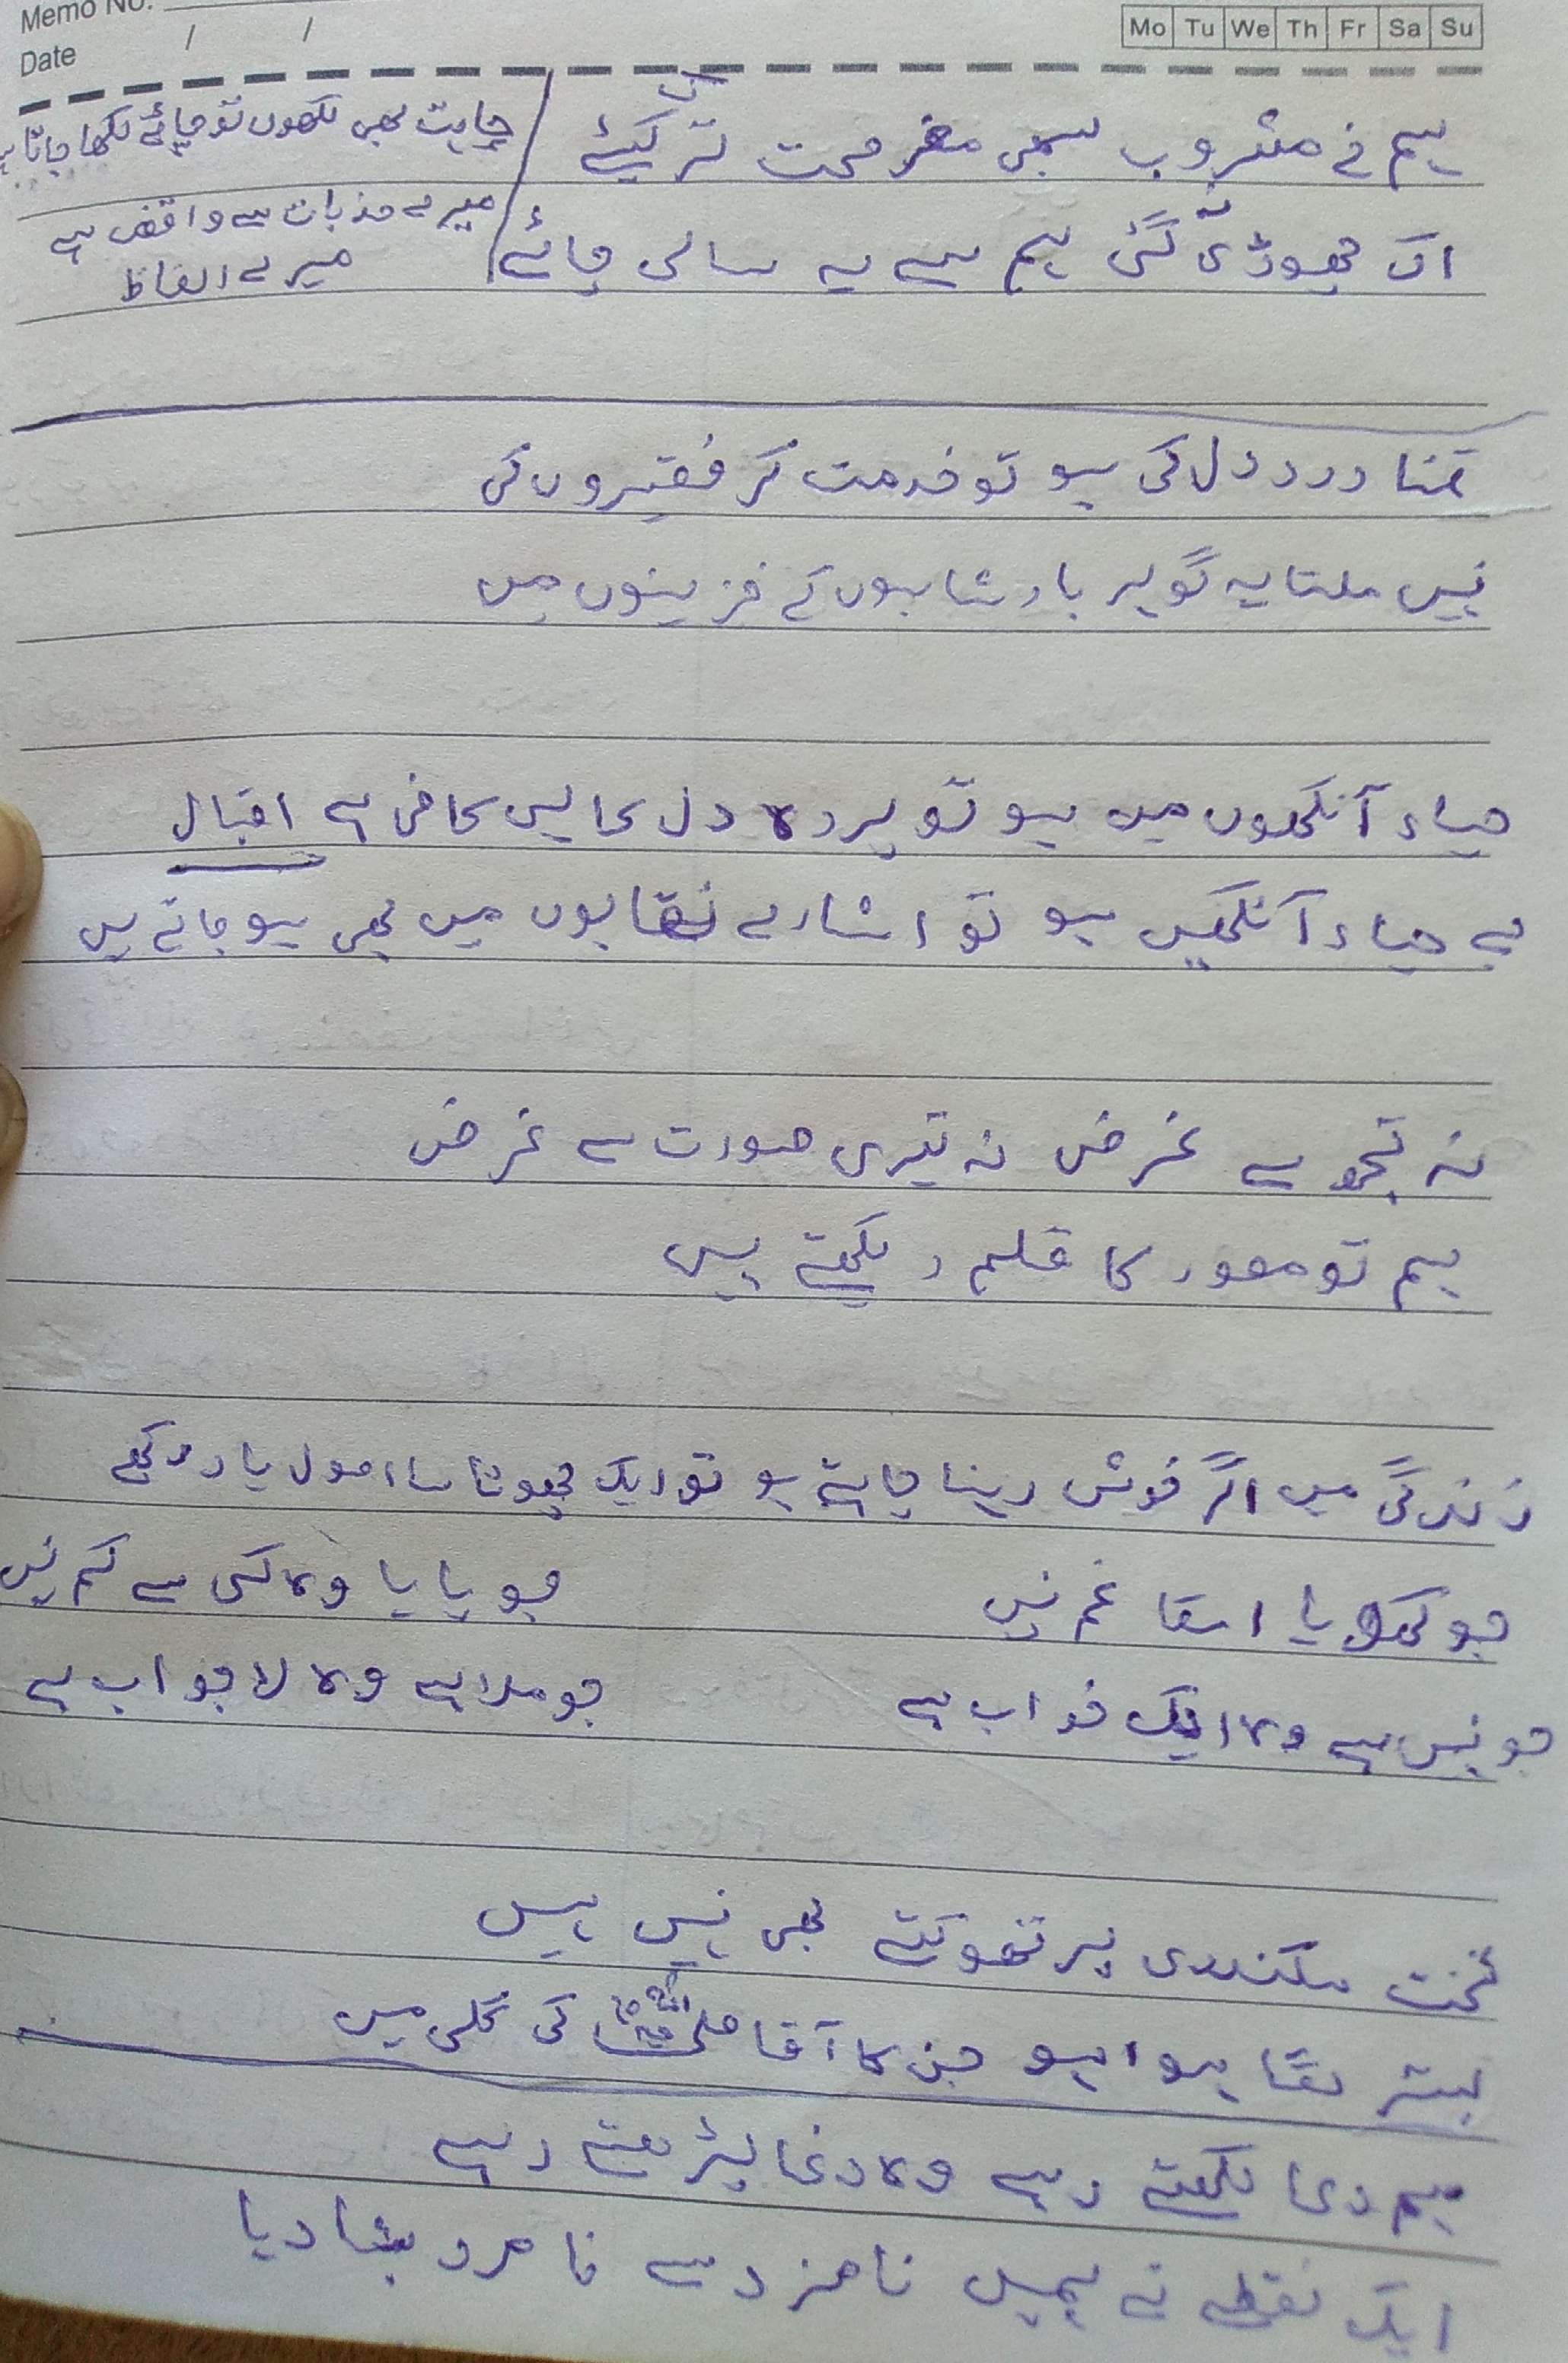 Memo No.
Date / /
Mo Tu We Th Fr Sa Su
ہم نے مشروب سبھی مضر صحت ترک کیئے
اک چھوڑی نہ گئی ہم سے یہ سالی چائے
چاہت بھی لکھوں تو چائے لکھا جاتا ہے
میرے جذبات سے واقف ہے
میرے الفاظ
تمنا درد دل کی ہو تو خدمت کر فقیروں کی
نہیں ملتا یہ گوہر بادشاہوں کے خزینوں میں
حیاء آنکھوں میں ہو تو پردہ دل کا ہی کافی ہے اقبال
بے حیاء آنکھیں ہو تو اشارے نقابوں میں بھی ہو جاتے ہیں
نہ تجھ سے غرض نہ تیری صورت سے غرض
ہم تو مصور کا قلم دیکھتے ہیں
زندگی میں اگر خوش رہنا چاہتے ہو تو ایک چھوٹا سا اصول یاد رکھے
جو کھویا اسکا غم نہیں جو پایا وہ کسی سے کم نہیں
جو نہیں ہے وہ ایک خواب ہے جو ملا ہے وہ لاجواب ہے
تخت سکندری پر تھوکتے بھی نہیں ہیں
بستر لگا ہوا ہو جن کا آقا ﷺ کی گلی میں
ہم دعا لکھتے رہے وہ دغا پڑھتے رہے
ایک نقطے نے ہمیں نامزد سے نامرد بنا دیا